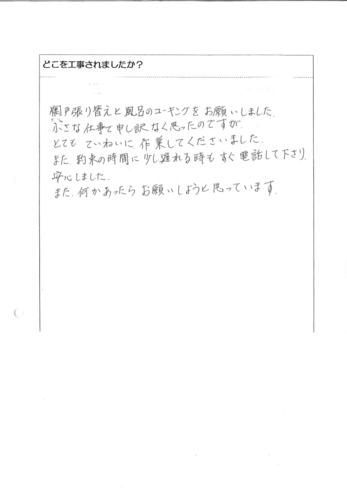 どこを工事されましたか？
網戸張り替えと風呂のコーキングをお願いしました。
小さな仕事で申し訳なく思ったのですが、
とても ていねいに 作業してくださいました。
また 約束の時間に少し遅れる時も すぐ 電話して下さり、
安心しました。
また、何かあったら お願いしようと思っています。